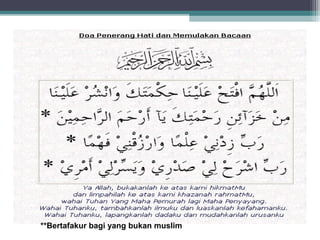 Doa Penerang Hati dan Memulakan Bacaan
بسم الله الرحمن الرحيم
اَللّٰهُمَّ افْتَحْ عَلَيْنَا حِكْمَتَكَ وَانْشُرْ عَلَيْنَا
مِنْ خَزَآئِنِ رَحْمَتِكَ يَآ أَرْحَمَ الرَّاحِمِيْنَ *
رَبِّ زِدْنِيْ عِلْمًا وَارْزُقْنِيْ فَهْمًا *
رَبِّ اشْرَحْ لِيْ صَدْرِيْ وَيَسِّرْلِيْ أَمْرِيْ *
Ya Allah, bukakanlah ke atas kami hikmatMu
dan limpahilah ke atas kami khazanah rahmatMu,
wahai Tuhan Yang Maha Pemurah lagi Maha Penyayang.
Wahai Tuhanku, tambahkanlah ilmuku dan luaskanlah kefahamanku.
Wahai Tuhanku, lapangkanlah dadaku dan mudahkanlah urusanku
**Bertafakur bagi yang bukan muslim